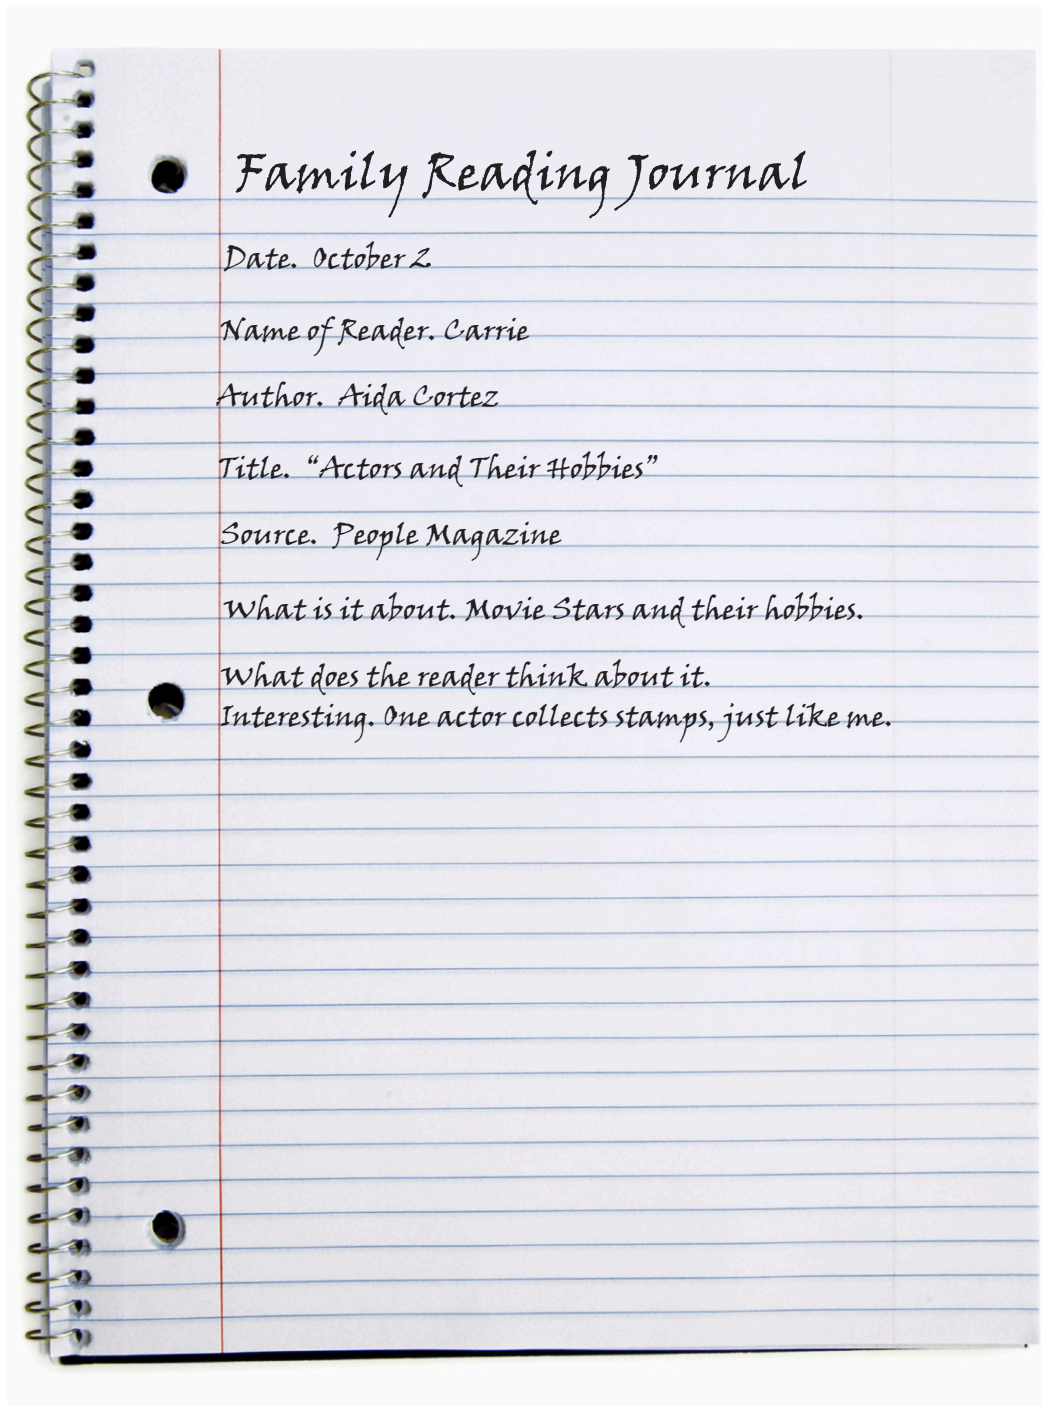 Family Reading Journal
Date. October 2
Name of Reader. Carrie
Author. Aida Cortez
Title. “Actors and Their Hobbies”
Source. People Magazine
What is it about. Movie Stars and their hobbies.
What does the reader think about it.
Interesting. One actor collects stamps, just like me.